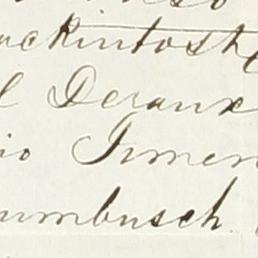 ackintosh
l Deraux
io Jimen
umbusch